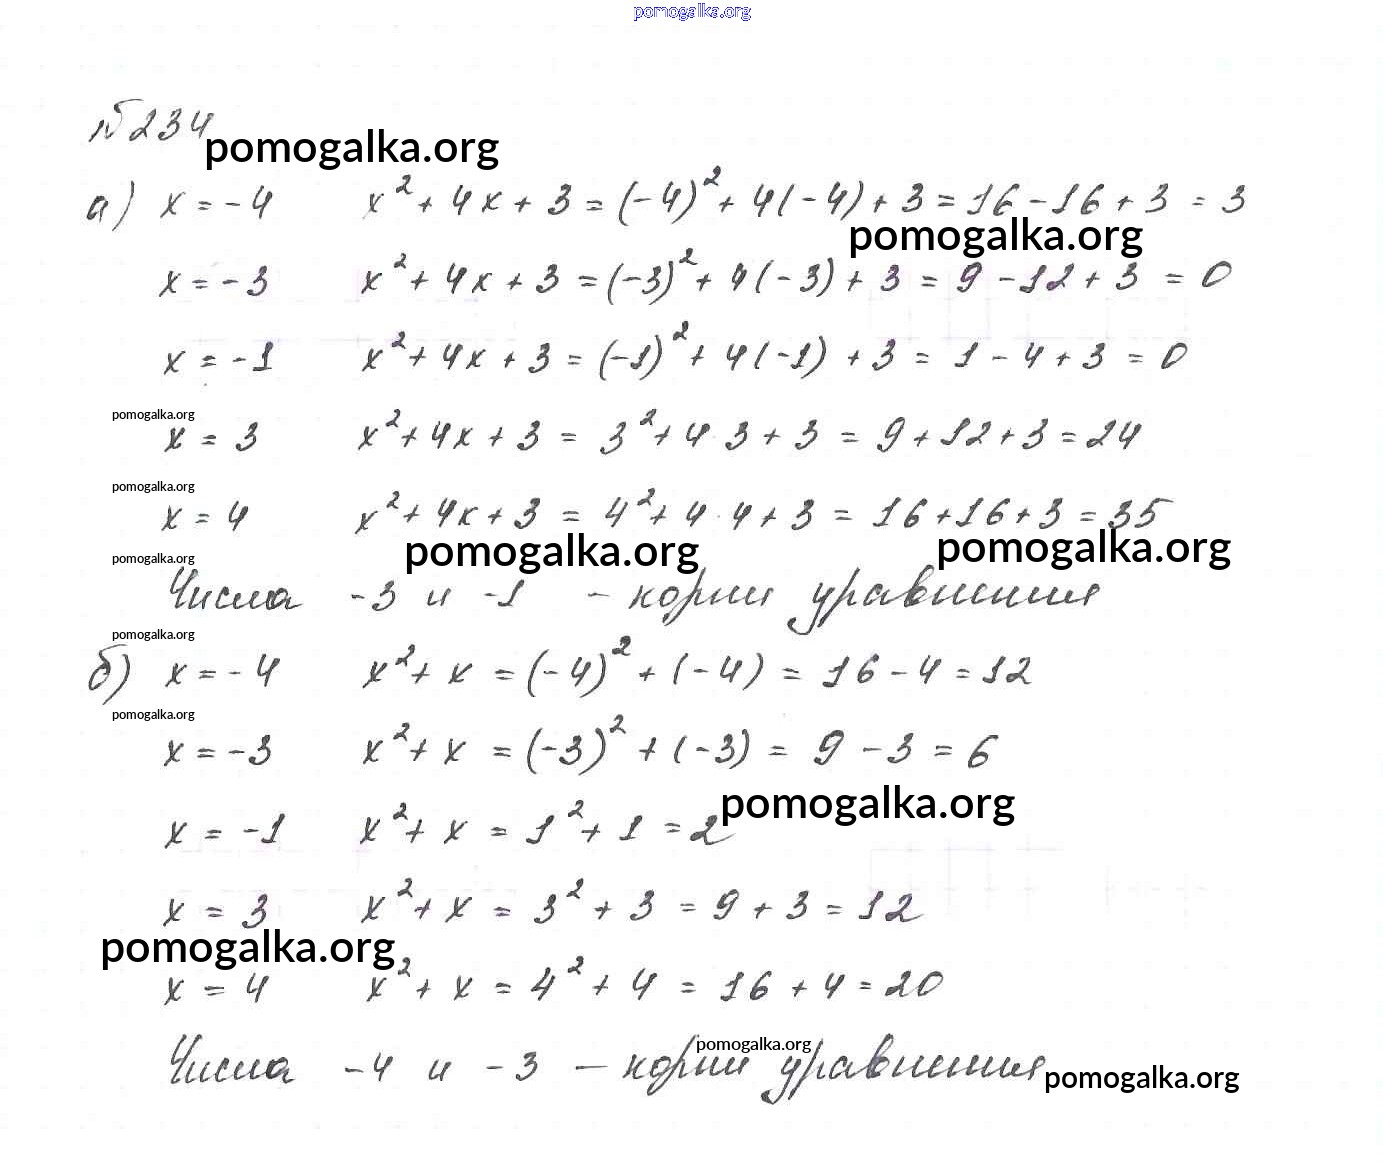 pomogalka.org
№234
pomogalka.org
а) x = -4 x² + 4x + 3 = (-4)² + 4(-4) + 3 = 16 - 16 + 3 = 3
pomogalka.org
x = -3 x² + 4x + 3 = (-3)² + 4(-3) + 3 = 9 - 12 + 3 = 0
x = -1 x² + 4x + 3 = (-1)² + 4(-1) + 3 = 1 - 4 + 3 = 0
pomogalka.org
x = 3 x² + 4x + 3 = 3² + 4·3 + 3 = 9 + 12 + 3 = 24
pomogalka.org
x = 4 x² + 4x + 3 = 4² + 4·4 + 3 = 16 + 16 + 3 = 35
pomogalka.org pomogalka.org
pomogalka.org
Числа -3 и -1 - корни уравнения
pomogalka.org
б) x = -4 x² + x = (-4)² + (-4) = 16 - 4 = 12
pomogalka.org
x = -3 x² + x = (-3)² + (-3) = 9 - 3 = 6
pomogalka.org
x = -1 x² + x = 1² + 1 = 2
x = 3 x² + x = 3² + 3 = 9 + 3 = 12
pomogalka.org
x = 4 x² + x = 4² + 4 = 16 + 4 = 20
pomogalka.org
Числа -4 и -3 - корни уравнения
pomogalka.org